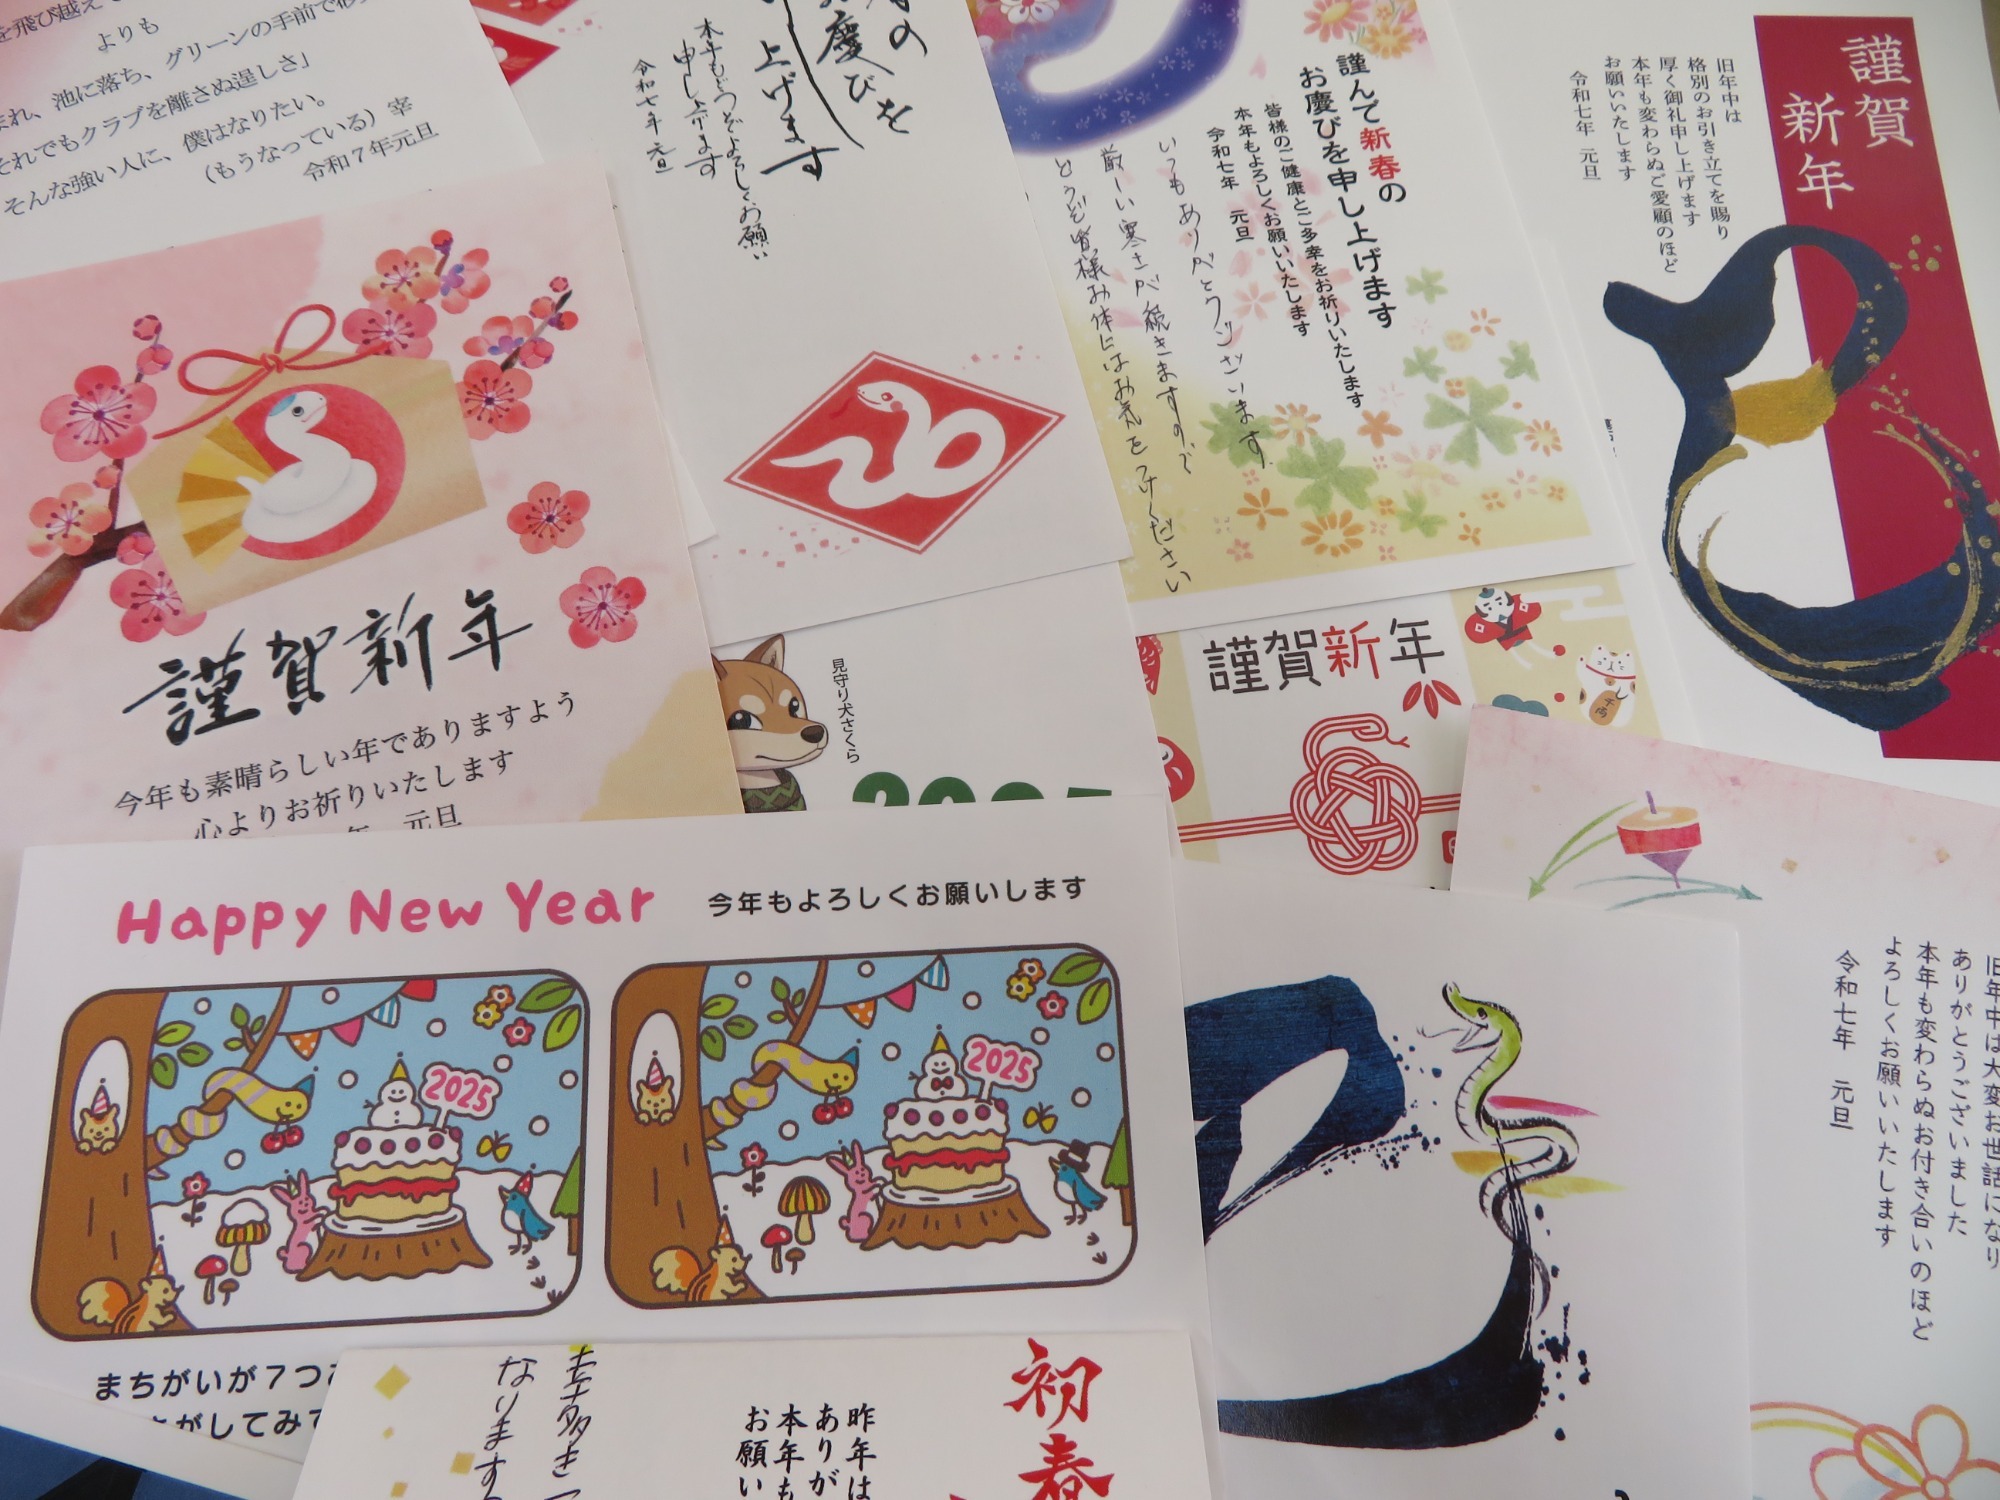 を飛び越え
よりも
まれ、池に落ち、グリーンの手前で
それでもクラブを離さぬ逞しさ」
そんな強い人に、僕はなりたい。
(もうなっている) 宰
令和7年元旦
春の
お慶びを
し上げます
本年もどうぞよろしくお願い
申し上げます
令和七年 元旦
謹んで新春の
お慶びを申し上げます
皆様のご健康とご多幸をお祈りいたします
本年もよろしくお願いいたします
令和七年 元旦
いつもありがとうございます。
厳しい寒さが続きますので
どうぞ皆様お体にはお気をつけください
謹賀
新年
旧年中は
格別のお引き立てを賜り
厚く御礼申し上げます
本年も変わらぬご愛顧のほど
お願いいたします
令和七年 元旦
謹賀新年
今年も素晴らしい年でありますよう
心よりお祈りいたします
年 元旦
見守り犬さくら
謹賀新年
千両
Happy New Year
今年もよろしくお願いします
2025
2025
まちがいが7つ
がしてみて
旧年中は大変お世話になり
ありがとうございました
本年も変わらぬお付き合いのほど
よろしくお願いいたします
令和七年 元旦
初春
昨年は
ありが
本年も
お願い
幸多き
なります